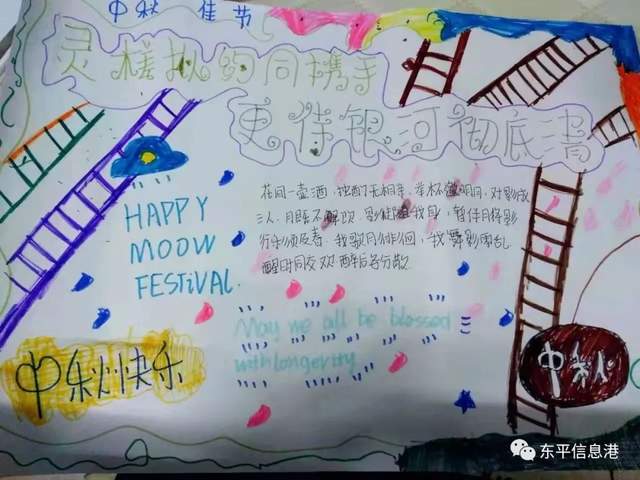 中秋佳节
灵槎拟约同携手
更待银河彻底清
HAPPY
MOOW
FESTiVAL.
花间一壶酒,独酌无相亲,举杯邀明月,对影成
三人.月既不解饮.影徒随我身,暂伴月将影
行乐须及春.我歌月徘徊,我舞影零乱
醒时同交欢醉后各分散
May we all be blessed
with longevity
中秋快乐
中秋
东平信息港